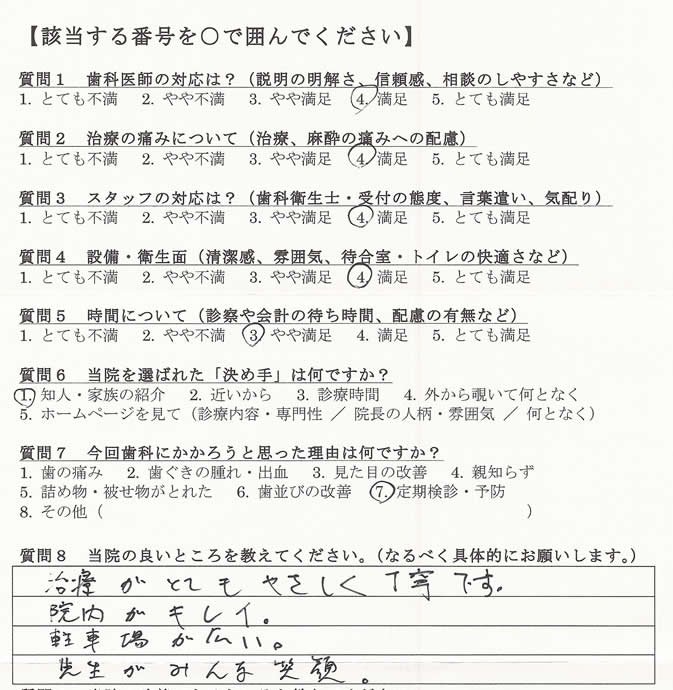 【該当する番号を○で囲んでください】
質問1　歯科医師の対応は？（説明の明解さ、信頼感、相談のしやすさなど）
1. とても不満　2. やや不満　3. やや満足　4. 満足　5. とても満足
質問2　治療の痛みについて（治療、麻酔の痛みへの配慮）
1. とても不満　2. やや不満　3. やや満足　4. 満足　5. とても満足
質問3　スタッフの対応は？（歯科衛生士・受付の態度、言葉遣い、気配り）
1. とても不満　2. やや不満　3. やや満足　4. 満足　5. とても満足
質問4　設備・衛生面（清潔感、雰囲気、待合室・トイレの快適さなど）
1. とても不満　2. やや不満　3. やや満足　4. 満足　5. とても満足
質問5　時間について（診察や会計の待ち時間、配慮の有無など）
1. とても不満　2. やや不満　3. やや満足　4. 満足　5. とても満足
質問6　当院を選ばれた「決め手」は何ですか？
1. 知人・家族の紹介　2. 近いから　3. 診療時間　4. 外から覗いて何となく
5. ホームページを見て（診療内容・専門性 ／ 院長の人柄・雰囲気 ／ 何となく）
質問7　今回歯科にかかろうと思った理由は何ですか？
1. 歯の痛み　2. 歯ぐきの腫れ・出血　3. 見た目の改善　4. 親知らず
5. 詰め物・被せ物がとれた　6. 歯並びの改善　7. 定期検診・予防
8. その他（　　　　　　　　　　）
質問8　当院の良いところを教えてください。（なるべく具体的にお願いします。）
治療がとてもやさしく丁寧です。
院内がキレイ。
駐車場が広い。
先生がみんな笑顔。